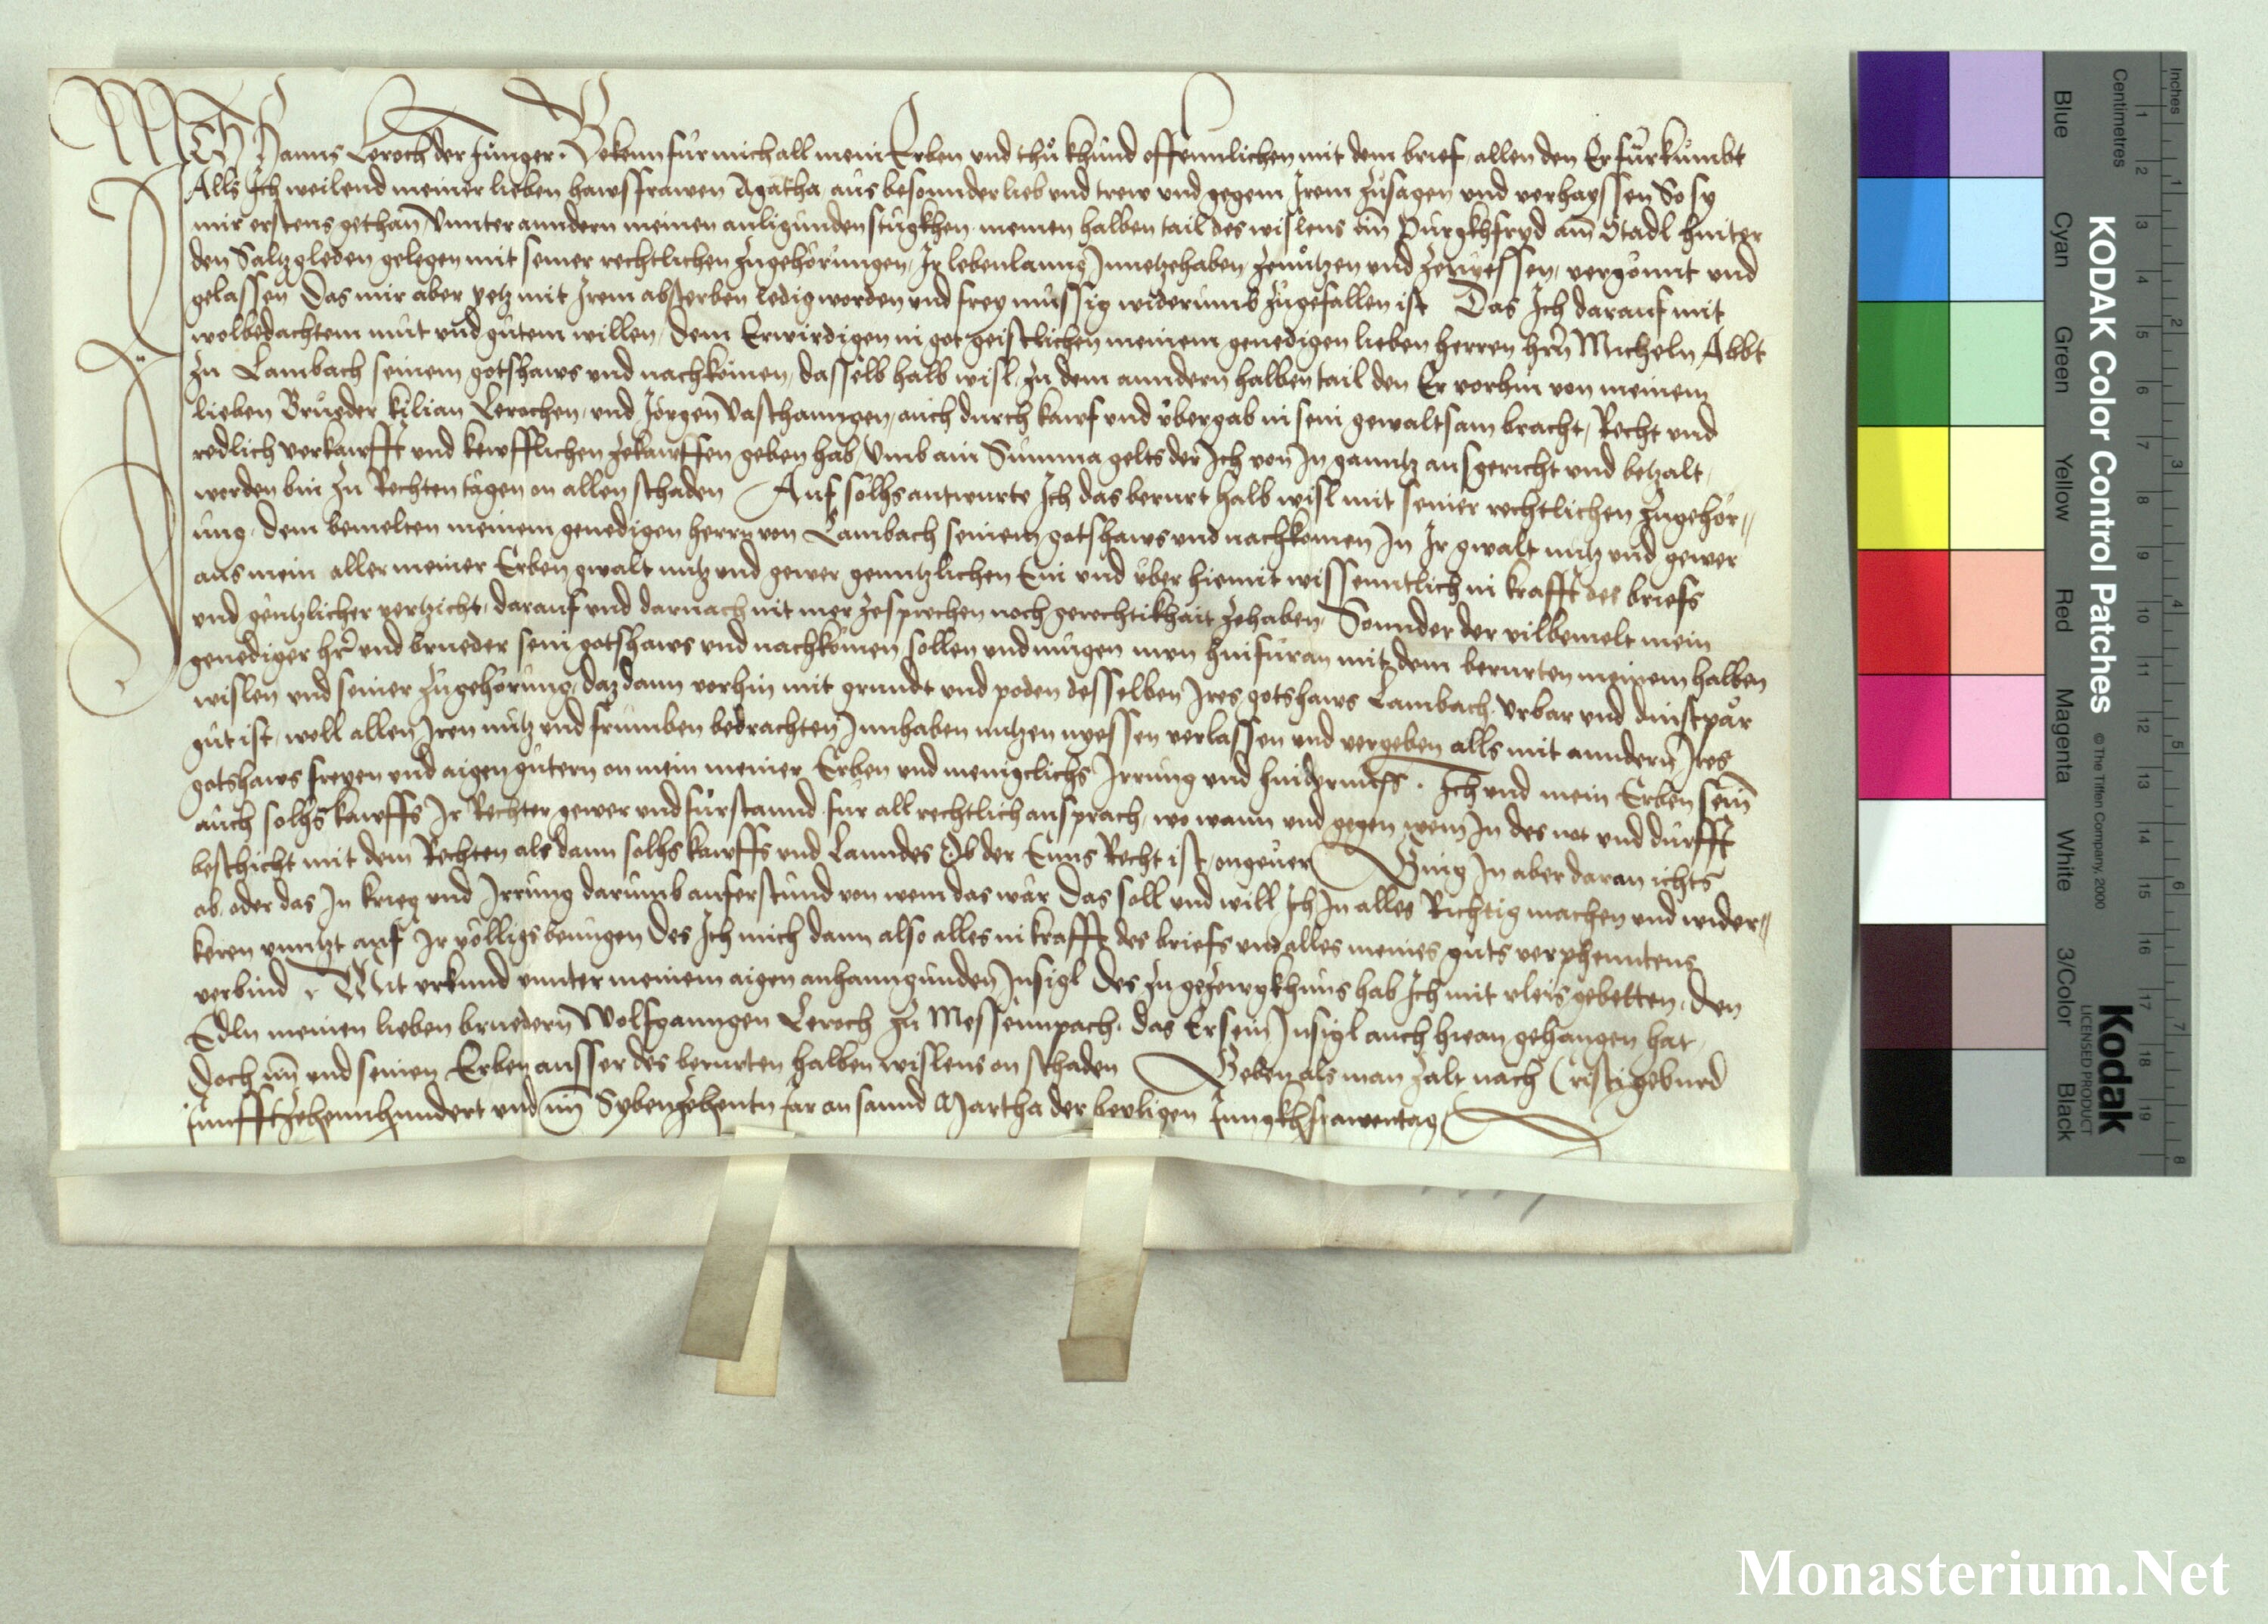 Ich Hanns Leroch der Junger. Bekenn fur mich all mein Erben und thu khund offennlichen mit dem brief allen den Er furkumbt
Alls Ich weilend meiner lieben hawsfrawen Agatha aus besonnder lieb und trew und gegem Irem zusagen und verhayssen So sy
mir erstens gethan Unnter anndern meinen anligunden stugkhen meinen halben tail des wislens im Purgkhfryd am Stadl hinter
den Saltzgleden gelegen mit seiner rechtlichen zugehorungen Ir lebenlanng Innetzehaben zenutzen und zeniessen vergonnt und
gelassen Das mir aber yetz mit Irem absterben ledig worden und frey mussig widerumb zugefallen ist Das Ich darauf mit
wolbedachtem mut und gutem willen dem Erwirdigen in got geistlichen meinem genedigen lieben herren hrn Micheln Abbt
zu Lambach seinem gotshaws und nachkomen dasselb halb wisl zu dem anndern halben tail den Er vorhin von meinem
lieben Brueder kilian Lerochen und Jorgen Vaschanngen auch durch kauf und ubergab in sein gewaltsam bracht Recht und
redlich verkawfft und kewfflichen zekauffen geben hab Umb ain Summa gelts der Ich von In ganntz ausgericht und betzalt
worden bin zu Rechten tagen on allen schaden Auf solhs antwurte Ich das berurt halb wisl mit seiner rechtlichen zugehor//
ung dem bemelten meinem genedigen herrn von Lambach seinem gotshaws und nachkomen In Ir gwalt nutz und gewer
aus mein aller meiner Erben gwalt nutz und gewer genntzlichen Ein und uber hiemit wissenntlich in krafft des briefs
und genntzlicher vertzicht darauf und darnach nit mer zesprechen noch gerechtikhait zehaben Sonnder der vilbemelt mein
genediger hr und brueder sein gotshaws und nachkomen sollen und mugen nun hinfuran mit dem berurten meinem halben
wislen und seiner zugehorung daz dann vorhin mit grundt und poden desselben Ires gotshaws Lambach Urbar und dinstpar
gut ist woll allen Iren nutz und frumben betrachten Innhaben nutzen nyessen verlassen und vergeben alls mit anndern Ires
gotshaws freyen und aigen gutern on mein meiner Erben und menigclichs Irrung und hindernuss. Ich und mein Erben sein
auch solhs kauffs Ir Rechter gewer und furstannd fur all rechtlich ansprach wo wann und gegen wem In des not und durfft
beschicht mit dem Rechten als dann solhs kauffs und Lanndes Ob der Enns Recht ist ongeuer Ging In aber daran ichts
ab oder das In krieg und Irrung darumb auferstund von wem das war Das soll und will Ich In alles Richtig machen und wider//
keren unntzt auf Ir volligs benugen Des Ich mich dann also alles in krafft des briefs und alles meines guts verphenntens
verbind Mit urkund unnter meinem aigen anhanngunden Insigl Des zu gezewgkhnus hab Ich mit vleis gebetten den
Edln meinen lieben bruedern Wolfganngen Leroch zu Messennpach das Er sein Insigl auch hieran gehangen hat
Doch im und seinen Erben ausser des berurten halben wislens on schaden Geben als man zalt nach Cristi geburd
funfftzehennhundert und im Sybenzehentn Jar an sannd Martha der heyligen Jungkhfrawentag
KODAK Color Control Patches
© The Tiffen Company, 2000
Kodak
LICENSED PRODUCT
Blue Cyan Green Yellow Red Magenta White 3/Color Black
Centimetres 1 2 3 4 5 6 7 8 9 10 11 12 13 14 15 16 17 18 19
Inches 1 2 3 4 5 6 7 8
Monasterium.Net